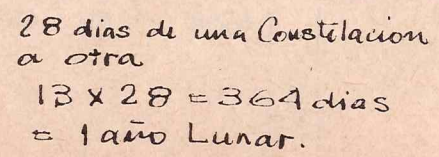 28 dias de una Constelacion
a otra
13 x 28 = 364 dias
= 1 año Lunar.